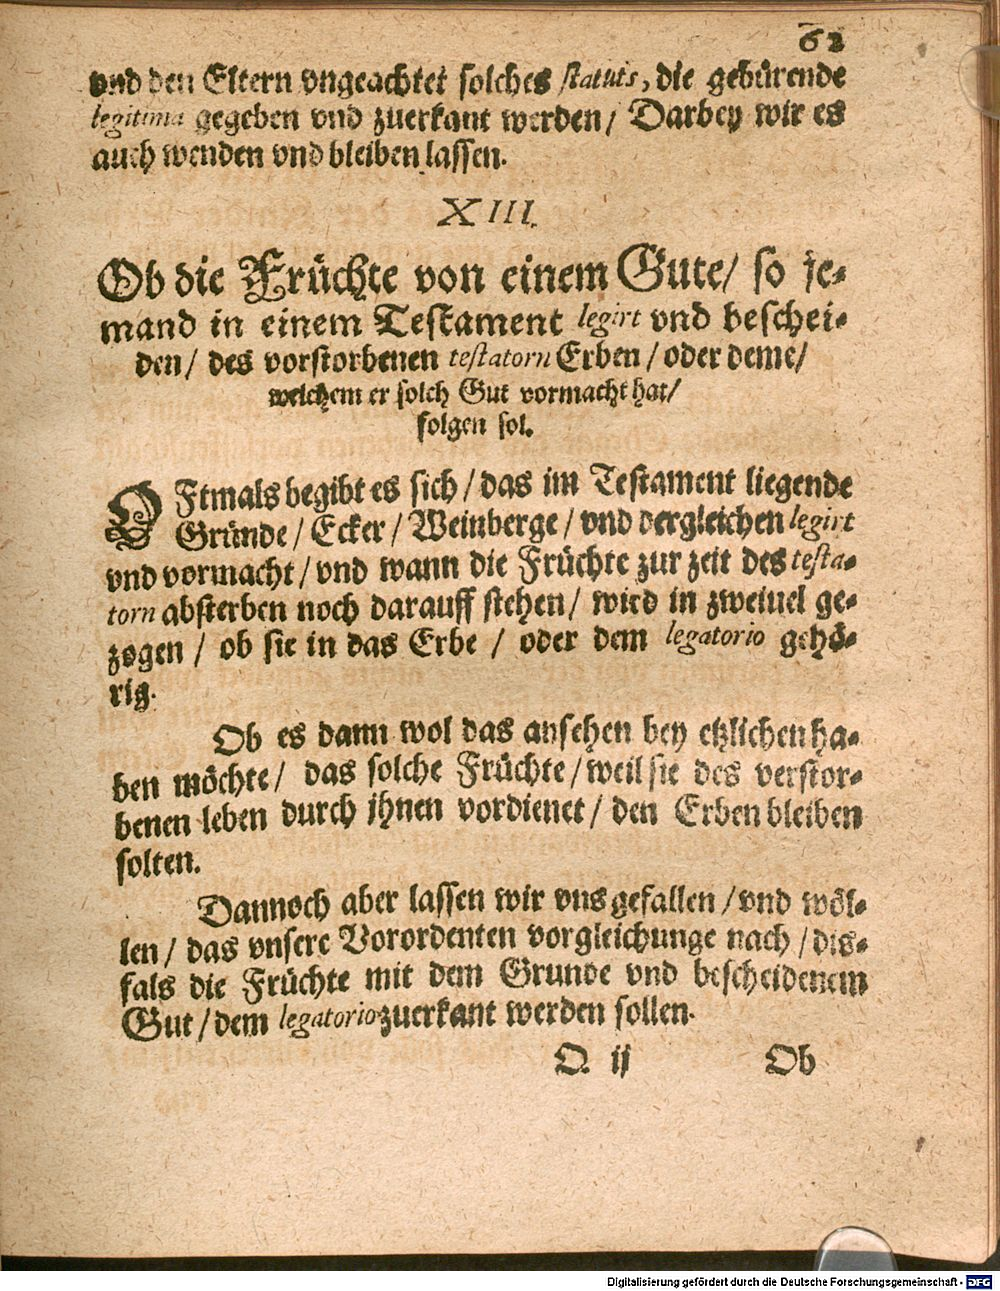 62
vnd den Eltern vngeachtet solches statuts, die gebürende
legitima gegeben vnd zuerkant werden / Darbey wir es
auch wenden vnd bleiben lassen.
XIII.
Ob die Früchte von einem Gute / so je-
mand in einem Testament legirt vnd beschei-
den / des vorstorbenen testatorn Erben / oder deme /
welchem er solch Gut vormacht hat /
folgen sol.
OFtmals begibt es sich / das im Testament liegende
Gründe / Ecker / Weinberge / vnd dergleichen legirt
vnd vormacht / vnd wann die Früchte zur zeit des testa-
torn absterben noch darauff stehen / wird in zweiuel ge-
zogen / ob sie in das Erbe / oder dem legatorio gehö-
rig.
Ob es dann wol das ansehen bey etzlichen ha-
ben möchte / das solche Früchte / weil sie des verstor-
benen leben durch jhnen vordienet / den Erben bleiben
solten.
Dannoch aber lassen wir vns gefallen / vnd wöl-
len / das vnsere Verordenten vorgleichunge nach / dis-
fals die Früchte mit dem Grunde vnd bescheidenem
Gut / dem legatorio zuerkant werden sollen.
O ij Ob
Digitalisierung gefördert durch die Deutsche Forschungsgemeinschaft - DFG